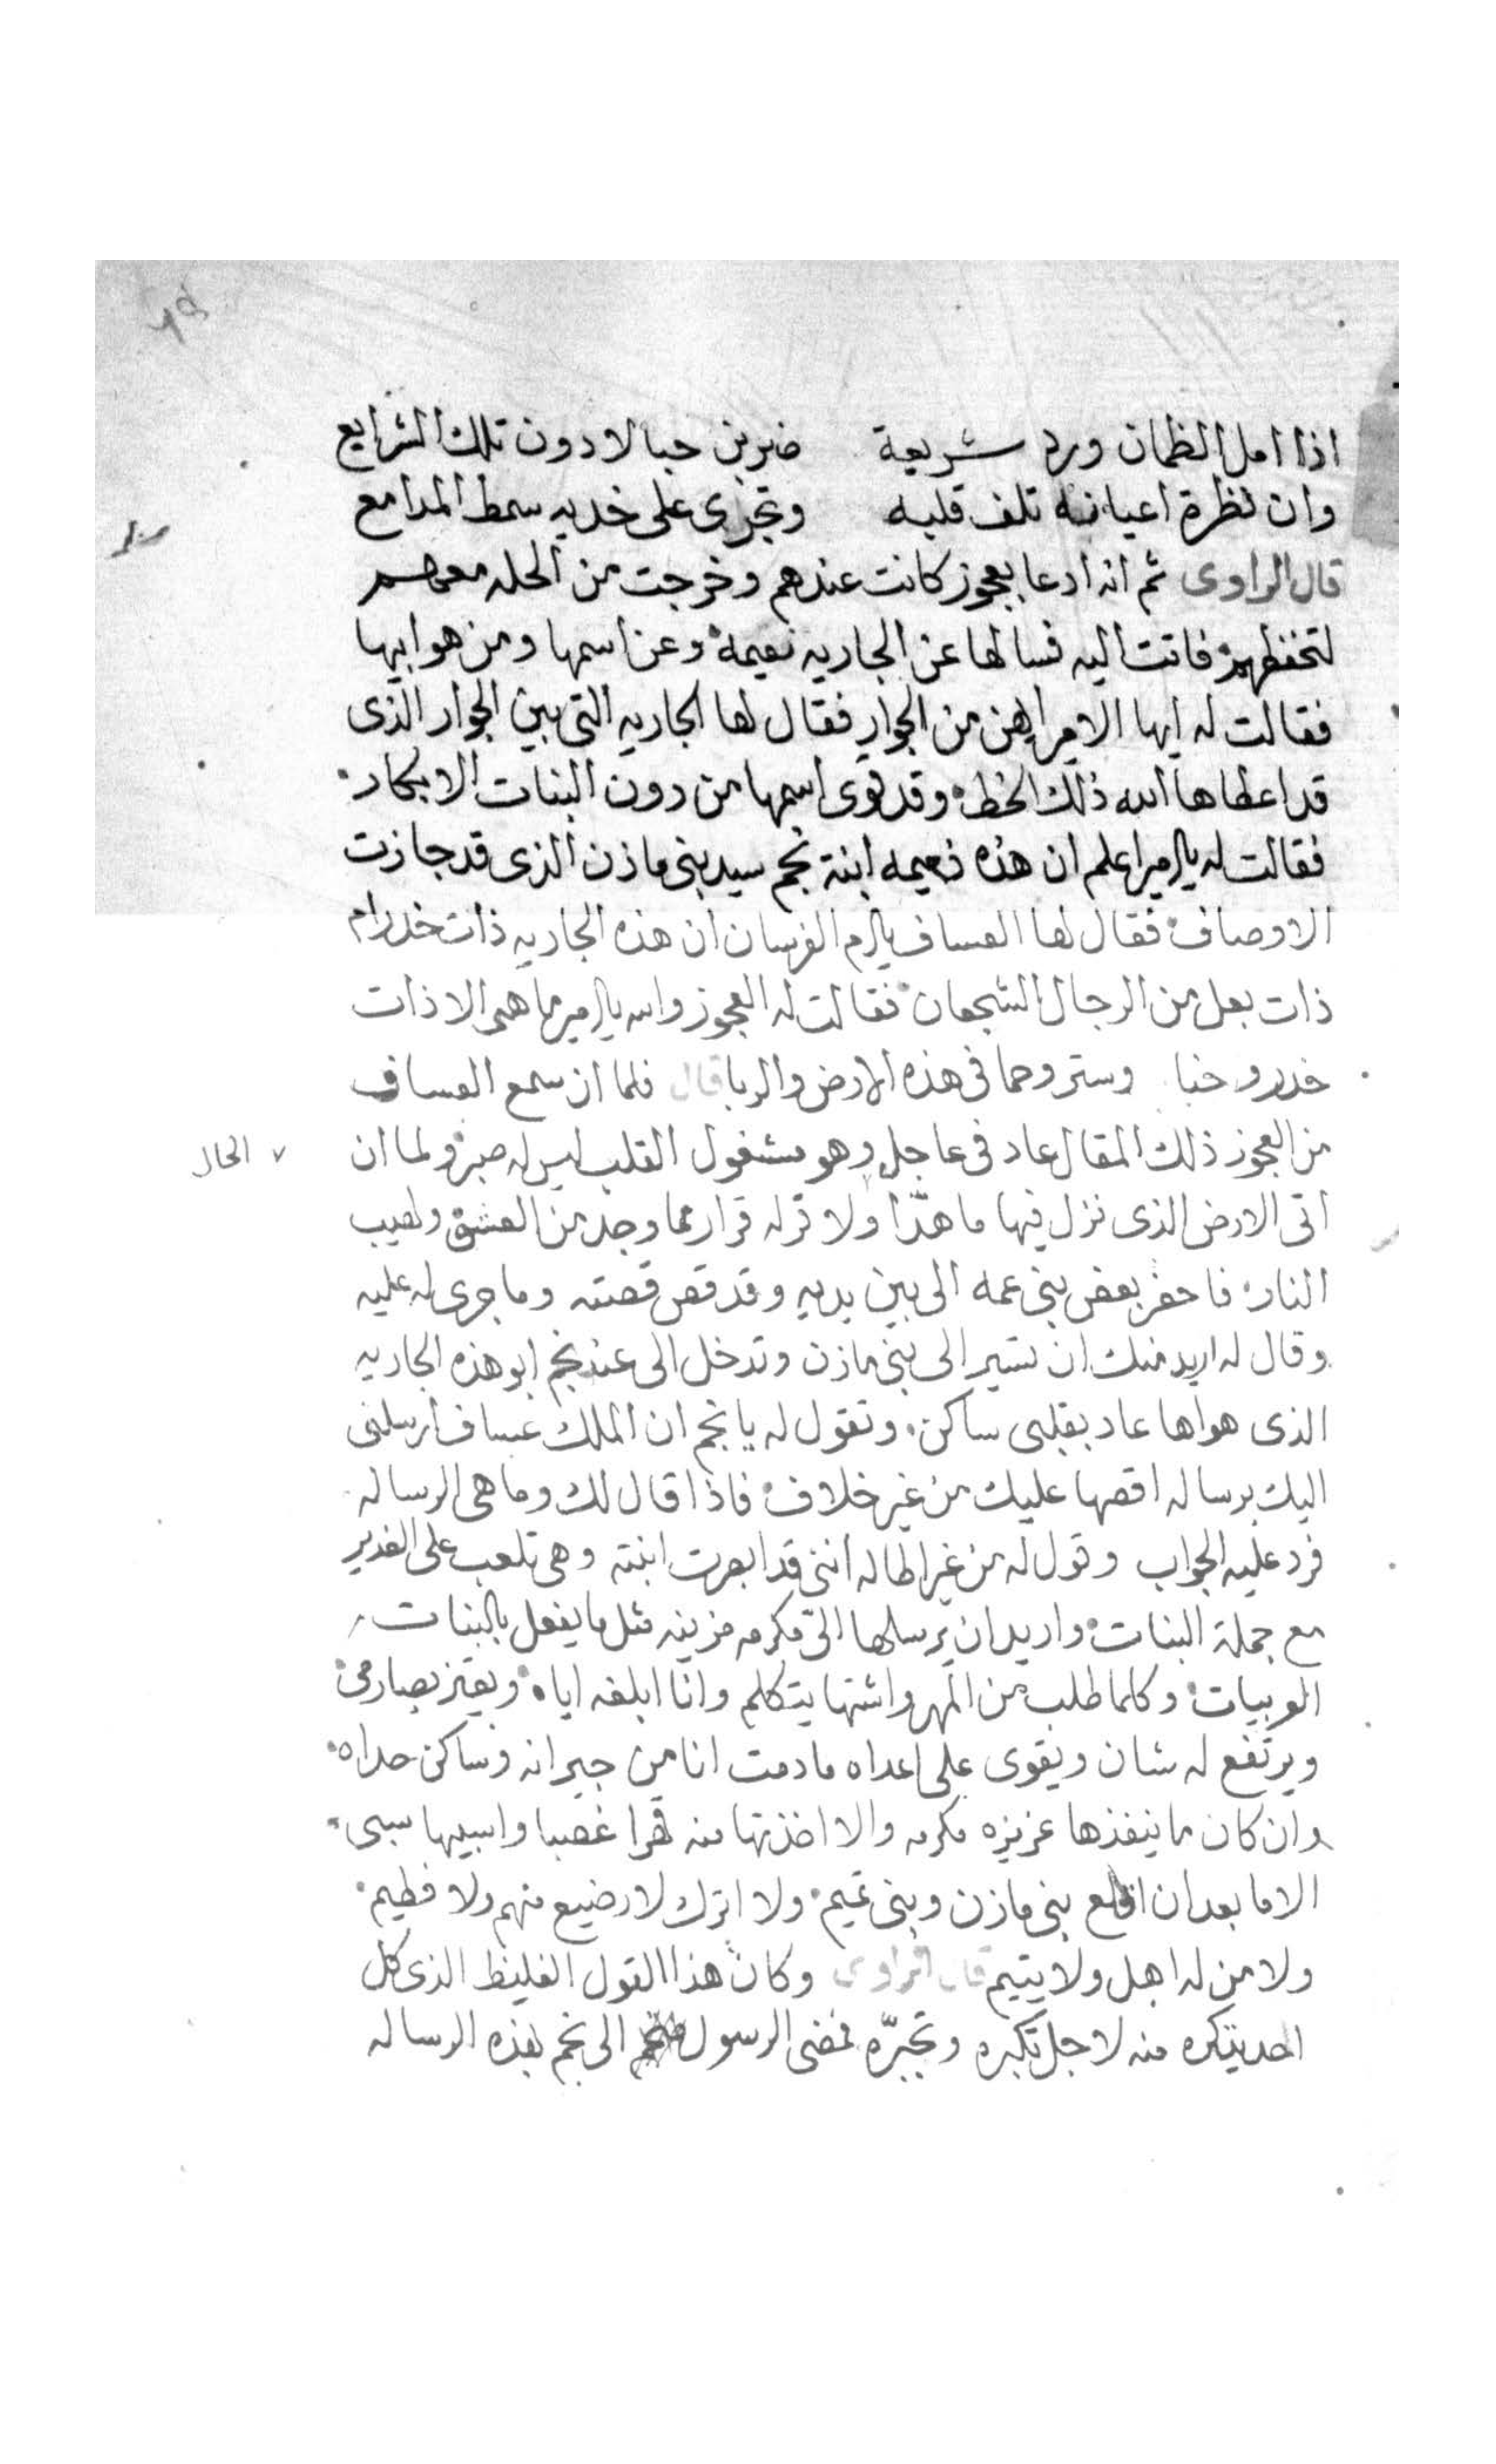 اذا امل الظمان ورد شريعة ضربن حبالا دون تلك الشرايع
وان نظرة اعيانه تلف قلبه وتجرى على خديه سمط المدامع
قال الراوى ثم انه ادعا بعجوز كانت عندهم وخرجت من الحله معهم
لتحفظهم فاتت اليه فسالها عن الجاريه نعيمة وعن اسمها ومن هو ابيها
فقالت له ايها الامير ايهن من الجوار فقال لها الجاريه التى بين الجوار الذى
قد اعطاها الله ذلك الخط وقد قوى اسمها من دون البنات الابكار
فقالت له يالامير اعلم ان هذه نعيمه ابنة نجم سيد بنى مازن الذى قد جازت
الاوصاف فقال لها العساف يالرم الفرسان ان هذه الجاريه ذات خدر ام
ذات بعل من الرجال الشجعان فقالت له العجوز والله يالامير ما هى الا ذات
خدر وخبا وستر وحما فى هذه الارض والربا قال فلما ان سمع العساف
من العجوز ذلك المقال عاد فى عاجل الحال وهو مشغول القلب ليس له صبر ولما ان
اتى الارض الذى نزل فيها ما هدّا ولا قر له قرار مما وجد من العشق ولهيب
النار فاحضر بعض بنى عمه الى بين يديه وقد قص قصته وما جرى له عليه
وقال له اريد منك ان تسير الى بنى مازن وتدخل الى عند نجم ابو هذه الجاريه
الذى هواها عاد بقلبى ساكن وتقول له يا نجم ان الملك عساف ارسلنى
اليك برساله اقصها عليك من غير خلاف فاذا قال لك وما هى الرساله
فرد عليه الجواب وقول له من غير اطاله اننى قد ابصرت ابنته وهى تلعب على الغدير
مع جملة البنات واريد ان يرسلها الىّ مكرمه مزينه مثل ما يفعل بالبنات
العربيات وكلما طلب من المهر واشتها يتكلم وانا ابلغه اياه ويعتز بصارمى
ويرتفع له شان ويقوى على اعداه ما دمت انا من جيرانه وساكن حداه
وان كان ما ينفذها عزيزه مكرمه والا اخذتها منه قهرا غصبا واسبيها سبى
الاما بعد ان اقلع بنى مازن وبنى تميم ولا اترك لا رضيع منهم ولا فطيم
ولا من له اهل ولا يتيم قال الراوى وكان هذا القول الغليظ الذى كل
احد يتكره منه لاجل تكبره وتجبّره فمضى الرسول الى نجم بهذه الرساله